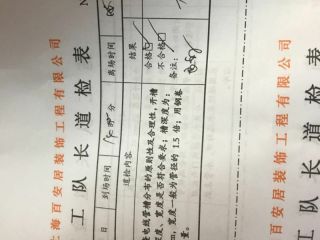 上海百安居装饰工程有限公司
工队长道检表
日 到场时间 分 离场时间
道检内容 结果
电线管槽分布的原则性及合理性，开槽 合格
深度，宽度是否符合要求；槽深度为： 不合格
m，宽度一般为管径的 1.5 倍；用钢卷 备注：
量。
百安居装饰工程有限公司
工队长道检表